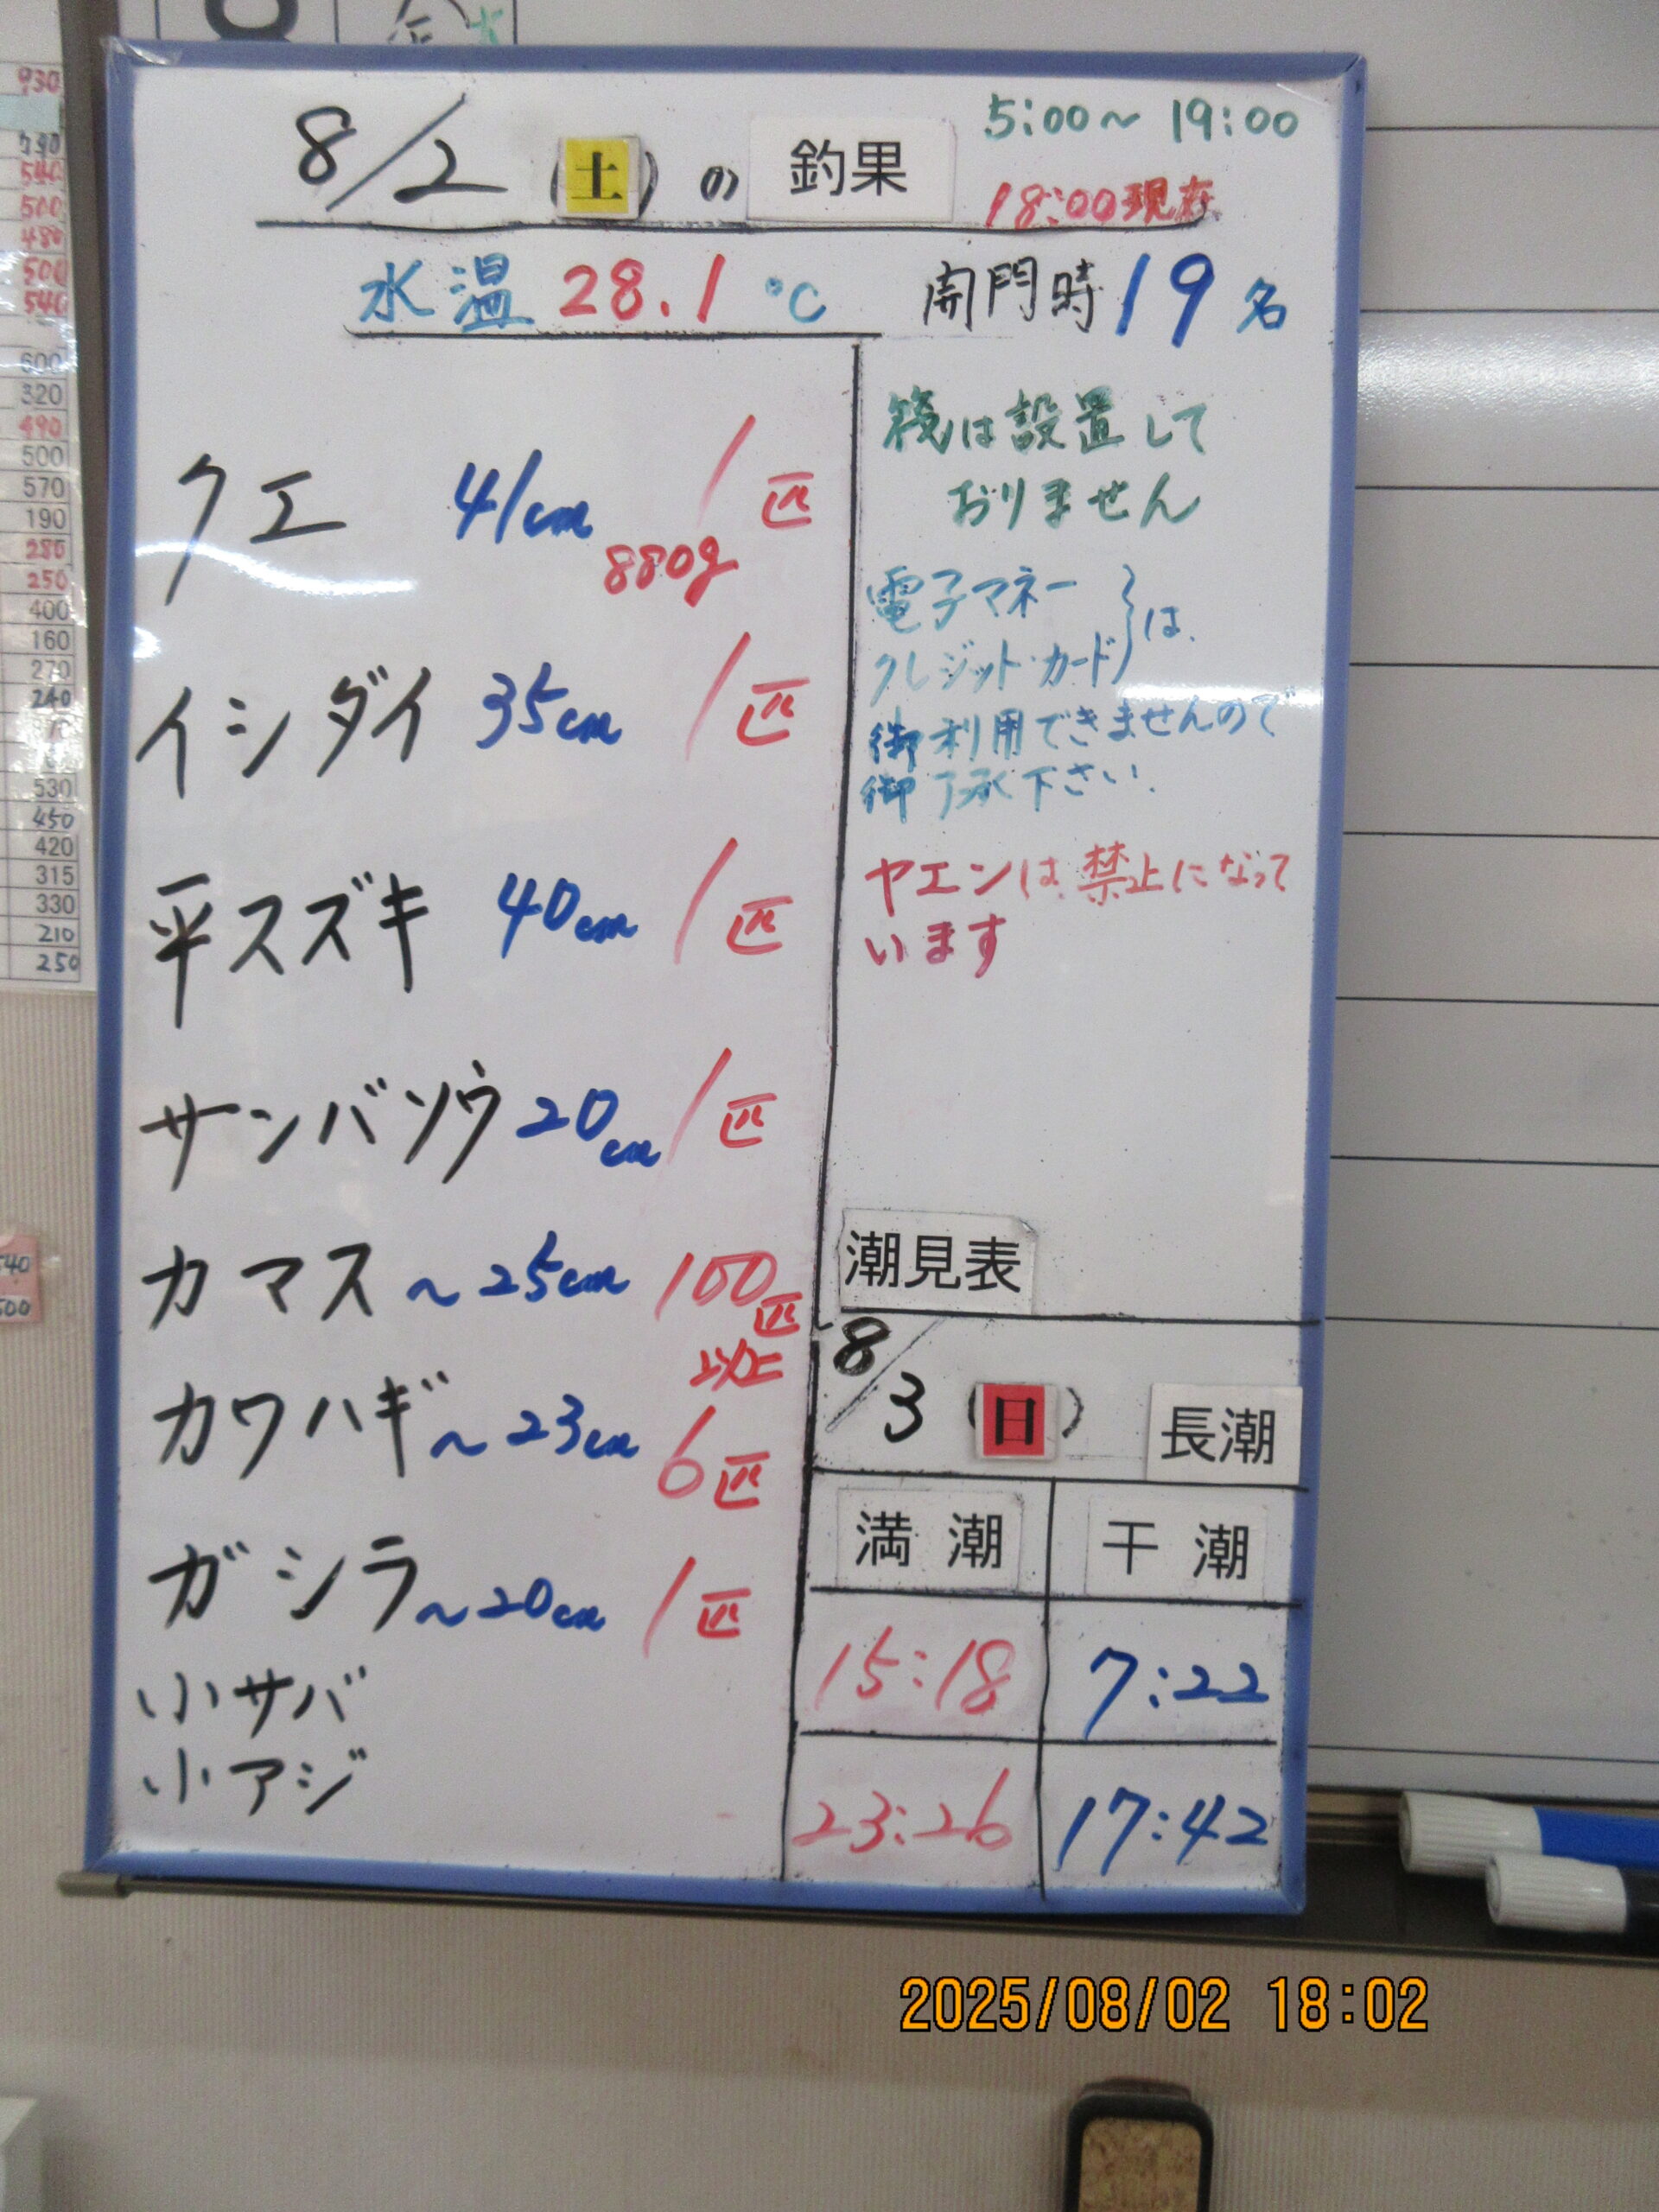 8/2(土)の釣果
5:00～19:00
18:00現在
水温 28.1℃
開門時19名
クエ 41cm 880g 1匹
イシダイ 35cm 1匹
平スズキ 40cm 1匹
サンバソウ 20cm 1匹
カマス ～25cm 100匹以上
カワハギ ～23cm 6匹
ガシラ ～20cm 1匹
小サバ
小アジ
筏は設置して
おりません
電子マネー
クレジット・カード}は
御利用できませんので
御了承下さい.
ヤエンは禁止になって
います
潮見表
8/3(日) 長潮
満潮 干潮
15:18 7:22
23:26 17:42
930
540
500
480
500
540
600
320
490
500
570
190
280
250
400
160
270
240
530
450
420
315
330
210
250
2025/08/02 18:02